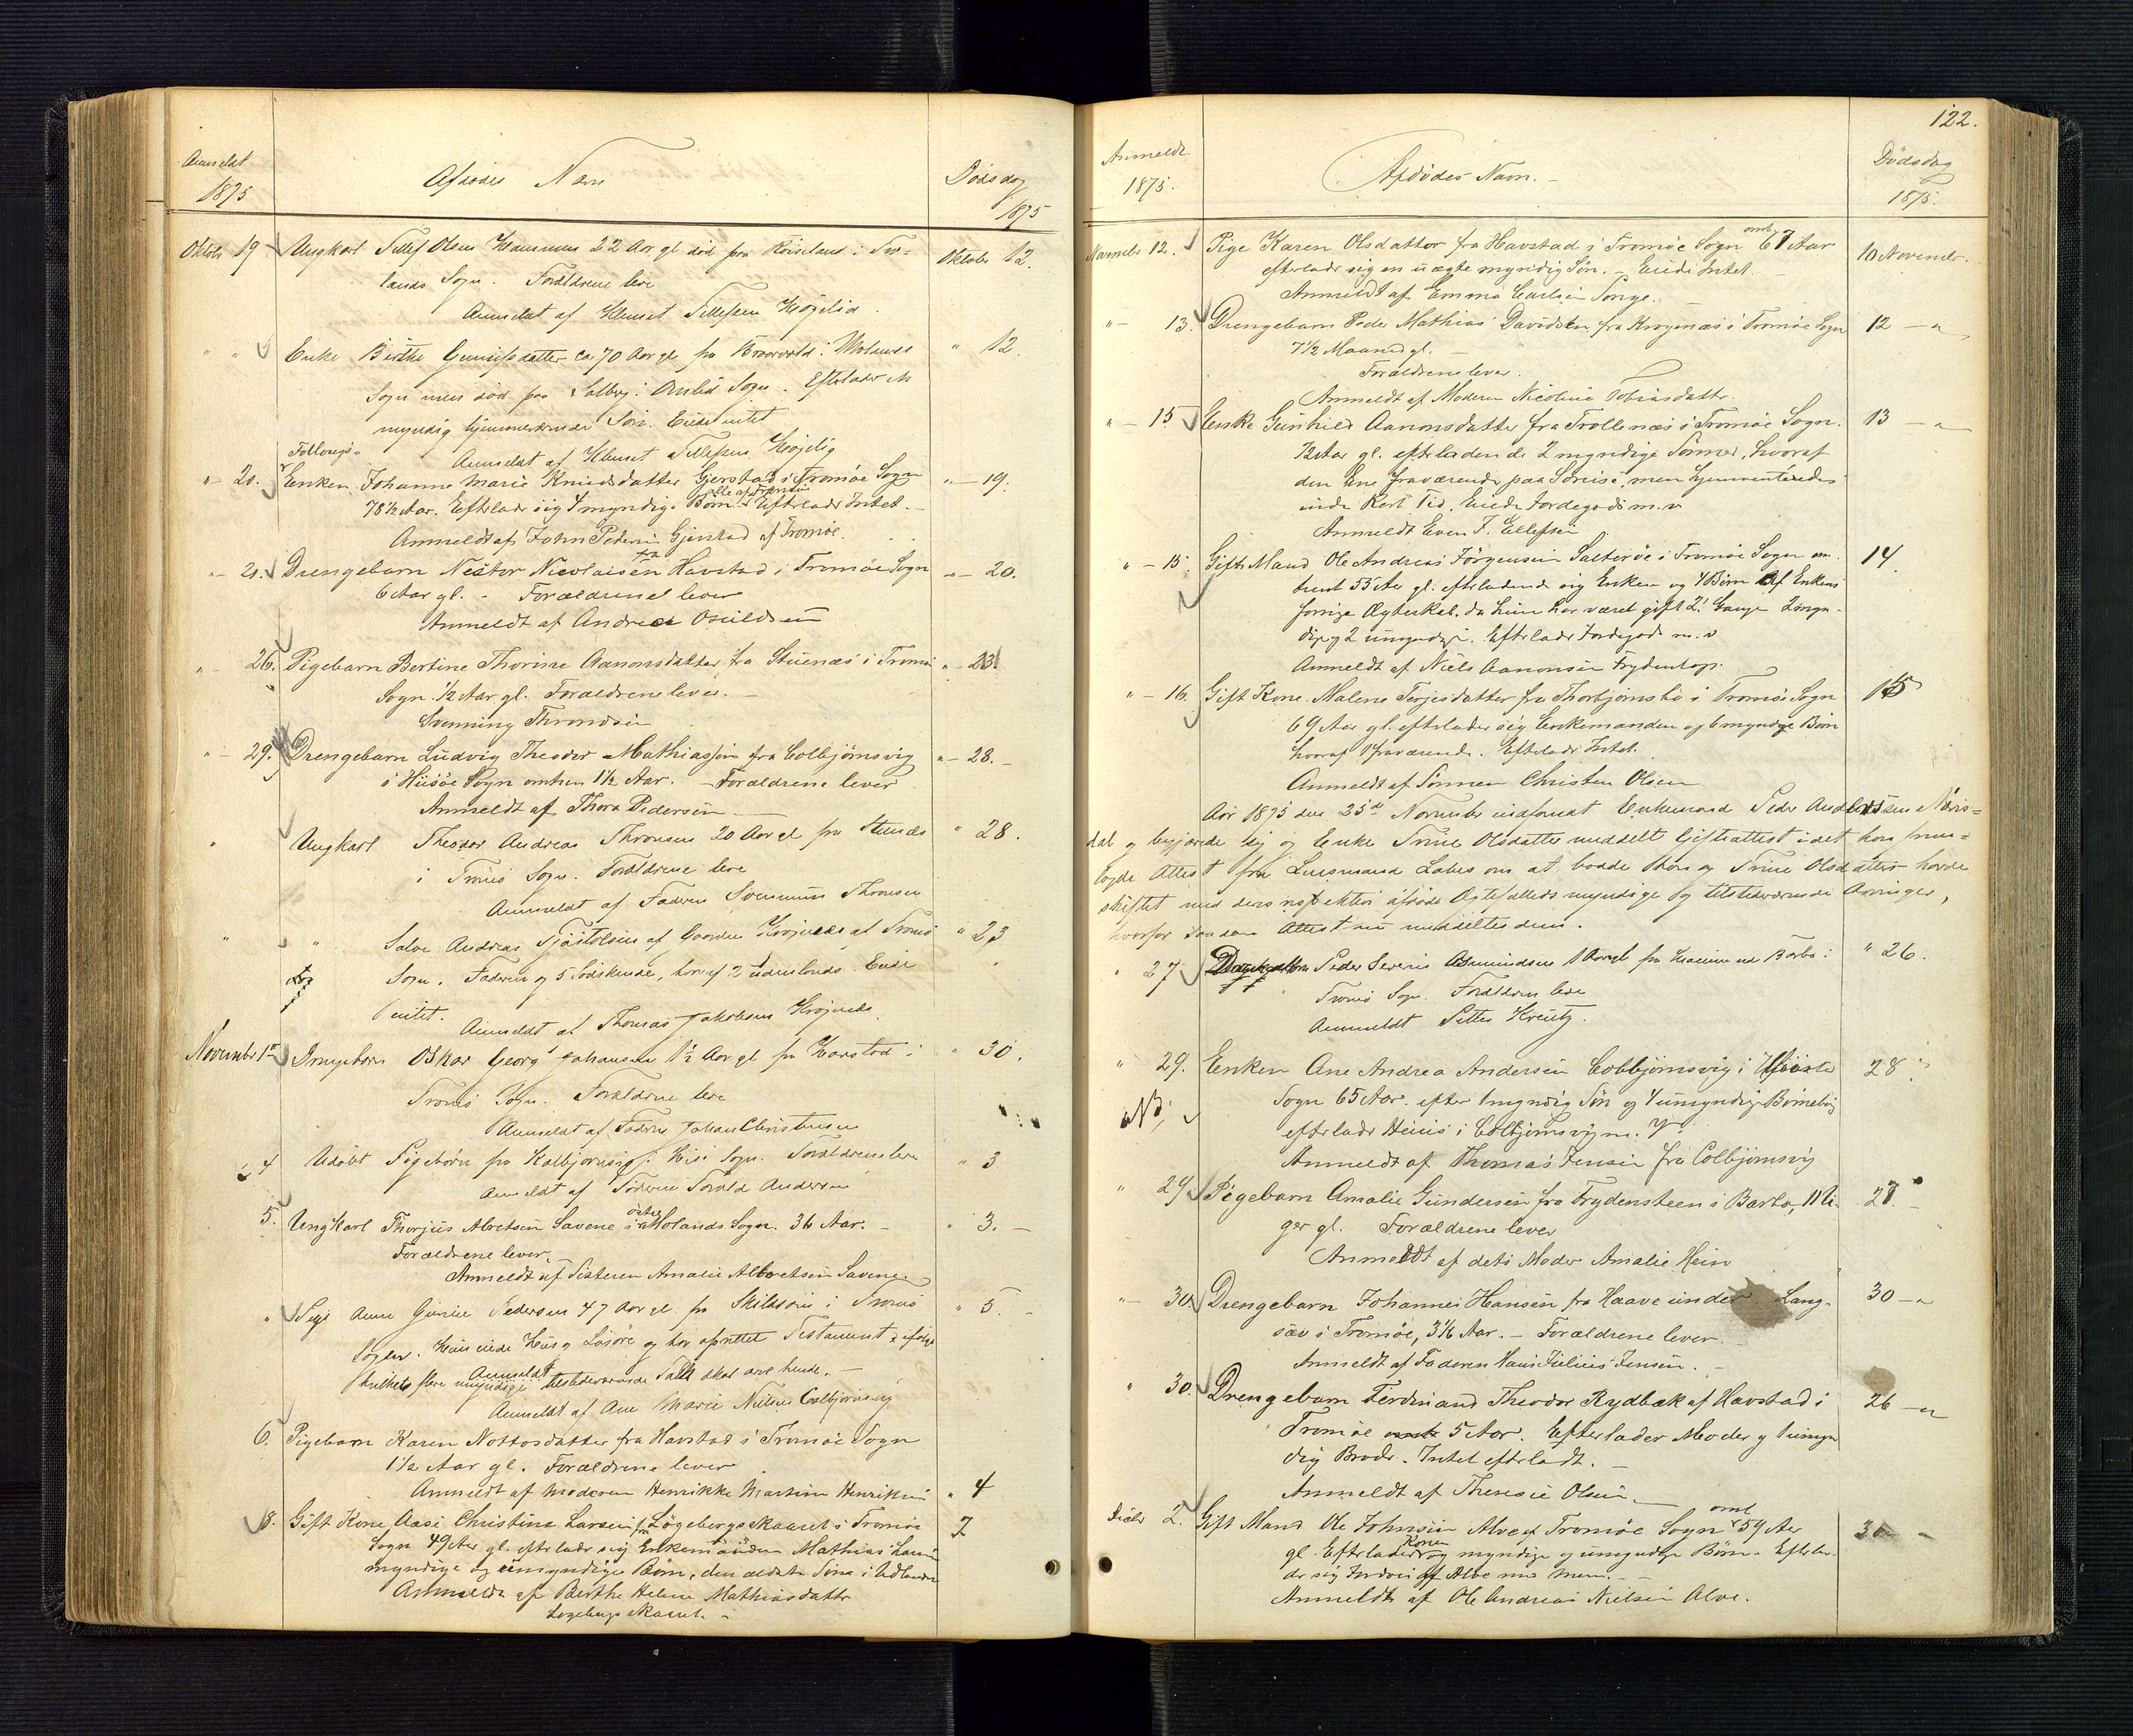 Anmeldt
1875
Afdødes Navn
Dødsdag
1875
Oktobr 19 Ungkarl Tellef Olsen 22 Aar gl. død fra i Tro-
lands Sogn. Forældrene leve
Anmeldt af Knut Tellefsen
" " Enke Birthe ca 70 Aar gl. fra i Molands
Sogn men død paa Solberg i Sogn. Efterlader en
myndig hjemmeværende Søn. Eiede intet
Anmeldt af Tellefsen
Oktober 12.
" 12.
"- 20. Enken Johanne Marie Knudsdatter Gjerstad i Tromøe Sogn
78 1/2 Aar. Efterlader sig 4 myndige Børn Efterlader Intet.
Anmeldt af John Pedersen Gjerstad af Tromøe.
"- 19.
"- 21. Drengebarn Nestor Nicolaisen fra Havstad i Tromøe Sogn
6 Aar gl. - Forældrene lever
Anmeldt af Andrea Osuldsen
"- 20.
"- 26. Pigebarn Bertine Thorine Aanonsdatter fra Stuenæs i Tromø
Sogn 1/2 Aar gl. Forældrene lever.
Svenning Throndsen
"- 23
"- 29. Drengebarn Ludvig Theodor Mathiassen fra Colbjørnsvig
i Hisøe Sogn omtren 1 1/2 Aar. - Forældrene lever
Anmeldt af Thora Pedersen
"- 28.-
" Ungkarl Theodor Andreas Thronsen 20 Aar gl fra Stuenæs
i Tromø Sogn. Forældrene leve
Anmeldt af Faderen Svennung Thronsen
" 28.
" " Salve Andreas Tjøstolsen af Gaarden Krøjnæs af Tromø
Sogn. Faderen og 5 Sødskende, hvoraf 2 udenlands. Eiede
intet.
Anmeldt af Thomas Jakobsen Krøjnæs
" 23
November 1st Drengebarn Oskar Georg Johansen 1 1/2 Aar gl. fra Havstad i
Tromø Sogn. Forældrene leve
Anmeldt af Faderen Johan Christensen
" 30.
" 4 Udøbt Pigebarn fra Kolbjørnsvig i Hisø Sogn. Forældrene leve
Anmeldt af Faderen Andersen
" 3
5. Ungkarl Thorjus Abretsen Savene i østre Molands Sogn. 36 Aar. -
Forældrene lever.
Anmeldt af Søsteren Amalie Albretsen Savene.
" 3. -
" Pige Anne Gunilie Pedersen 47 Aar gl. fra Skilsøen i Tromø
Sogn. Hun eiede Hus og Løsøre og har oprettet Testament, ifølge
hvilket flere umyndige tilstedeværende skal arve hende. -
Anmeldt af Ane Marie Nielsen Colbjørnsvig
" 5. -
6. Pigebarn Karen Nottosdatter fra Havstad i Tromøe Sogn
1 1/2 Aar gl. Forældrene lever
Anmeldt af Moderen Henrikke Martine Henriksen
" 4
8. Gift Kone Aase Christine Larsen fra Løgebergsskaaret i Tromøe
Sogn 49 Aar gl. efterlader sig Enkemanden Mathias Larsen
myndige og umyndige Børn, den ældste Søn i Udlandet
Anmeldt af Berthe Helene Mathiasdatter
Løgebergsskaaret. -
7
122.
Anmeldt
1875.
Afdødes Navn. -
Dødsdag
1875.
November 12. Pige Karen Olsdatter fra Havstad i Tromøe Sogn omt 67 Aar
efterlader sig en uægte myndig Søn. - Eiede Intet.
Anmeldt af Emma Carlsen Songe.
10 November.
"- 13. Drengebarn Peder Mathias Davidsen fra Krøgenæs i Tromøe Sogn
7 1/2 Maaned gl. -
Forældrene lever.
Anmeldt af Moderen Nicoline Tobiasdatter.
12 - "
"- 15 Enke Gunhild Aanonsdatter fra Trollenæs i Tromøe Sogn.
72 Aar gl. efterladende 2 myndige Sønner, hvoraf
den Ene fraværende paa Søreise, men hjemventendes
inden kort Tid. Eiede Jordegods m.v
Anmeldt Even F. Ellefsen
13 - "
"- 15. Gift Mand Ole Andreas Jørgensen Salterøe i Tromøe Sogn om-
trent 55 Aar gl. efterladende sig Enken og 4 Børn af Enkens
forrige Ægteskab, da hun har været gift 2 Gange 2 myn-
dige og 2 umyndige. Efterlader Jordegods m.v
Anmeldt af Niels Aanonsen Frydentop.
14
"- 16. Gift Kone Malene Terjesdatter fra Thorbjørnsbo i Tromøe Sogn
69 Aar gl. efterlader sig Enkemanden og 6 myndige Børn
hvoraf 1 fraværende. Efterlader Intet.
Anmeldt af Sønnen Christen Olsen
15
Aar 1875 den 25de November indfandt Enkemand Peder Andersen Næris-
dal og begjærede sig og Enke Trine Olsdatter meddelt Gifteattest idet han frem-
lagde Attest fra Lensmand Labes om at baade han og Trine Olsdatter havde
skiftet med deres respektive afdøde Ægtefælleds myndige og tilstedeværende Arvinger,
hvorfor saadan Attest meddeltes dem.
" 27 Peder Severin Aamundsen 1 Aar gl fra ved Barbo i
Tromø Sogn. Forældrene leve
Anmeldt Petter Kreutz.
" 26.
" 29. Enken Ane Andrea Andersen Colbjørnsvig i Hisøe
Sogn 65 Aar. efter 1 myndig Søn og 4 umyndige Børnebørn
efterlader Huus i Colbjørnsvig m. V
Anmeldt af Thomas Jensen fra Colbjørnsvig
28
" 29 Pigebarn Amalie Gundersen fra Frydensteen i Barbo, 11 U-
ger gl. Forældrene lever
Anmeldt af dets Moder Amalie Hein
27.
"- 30. Drengebarn Johannes Hansen fra Haave under Lang-
sæv i Tromøe, 3 1/6 Aar. - Forældrene lever.
Anmeldt af Faderen Hans Julius Jensen.
30 - "
" 30. Drengebarn Ferdinand Theodor Rydbæk af Havstad i
Tromøe 5 Aar. Efterlader Moder og 1 umyn
dig Broder. Intet efterladt. -
Anmeldt af Theresie Olsen
26 - "
Decbr 2. Gift Mand Ole Johnsen Alve af Tromøe Sogn omt 59 Aar
gl. Efterlader Konen og myndige og umyndige Børn. Efterla-
der sig Jordvei af Alve med mere. -
Anmeldt af Ole Andreas Nielsen Alve.
30 -